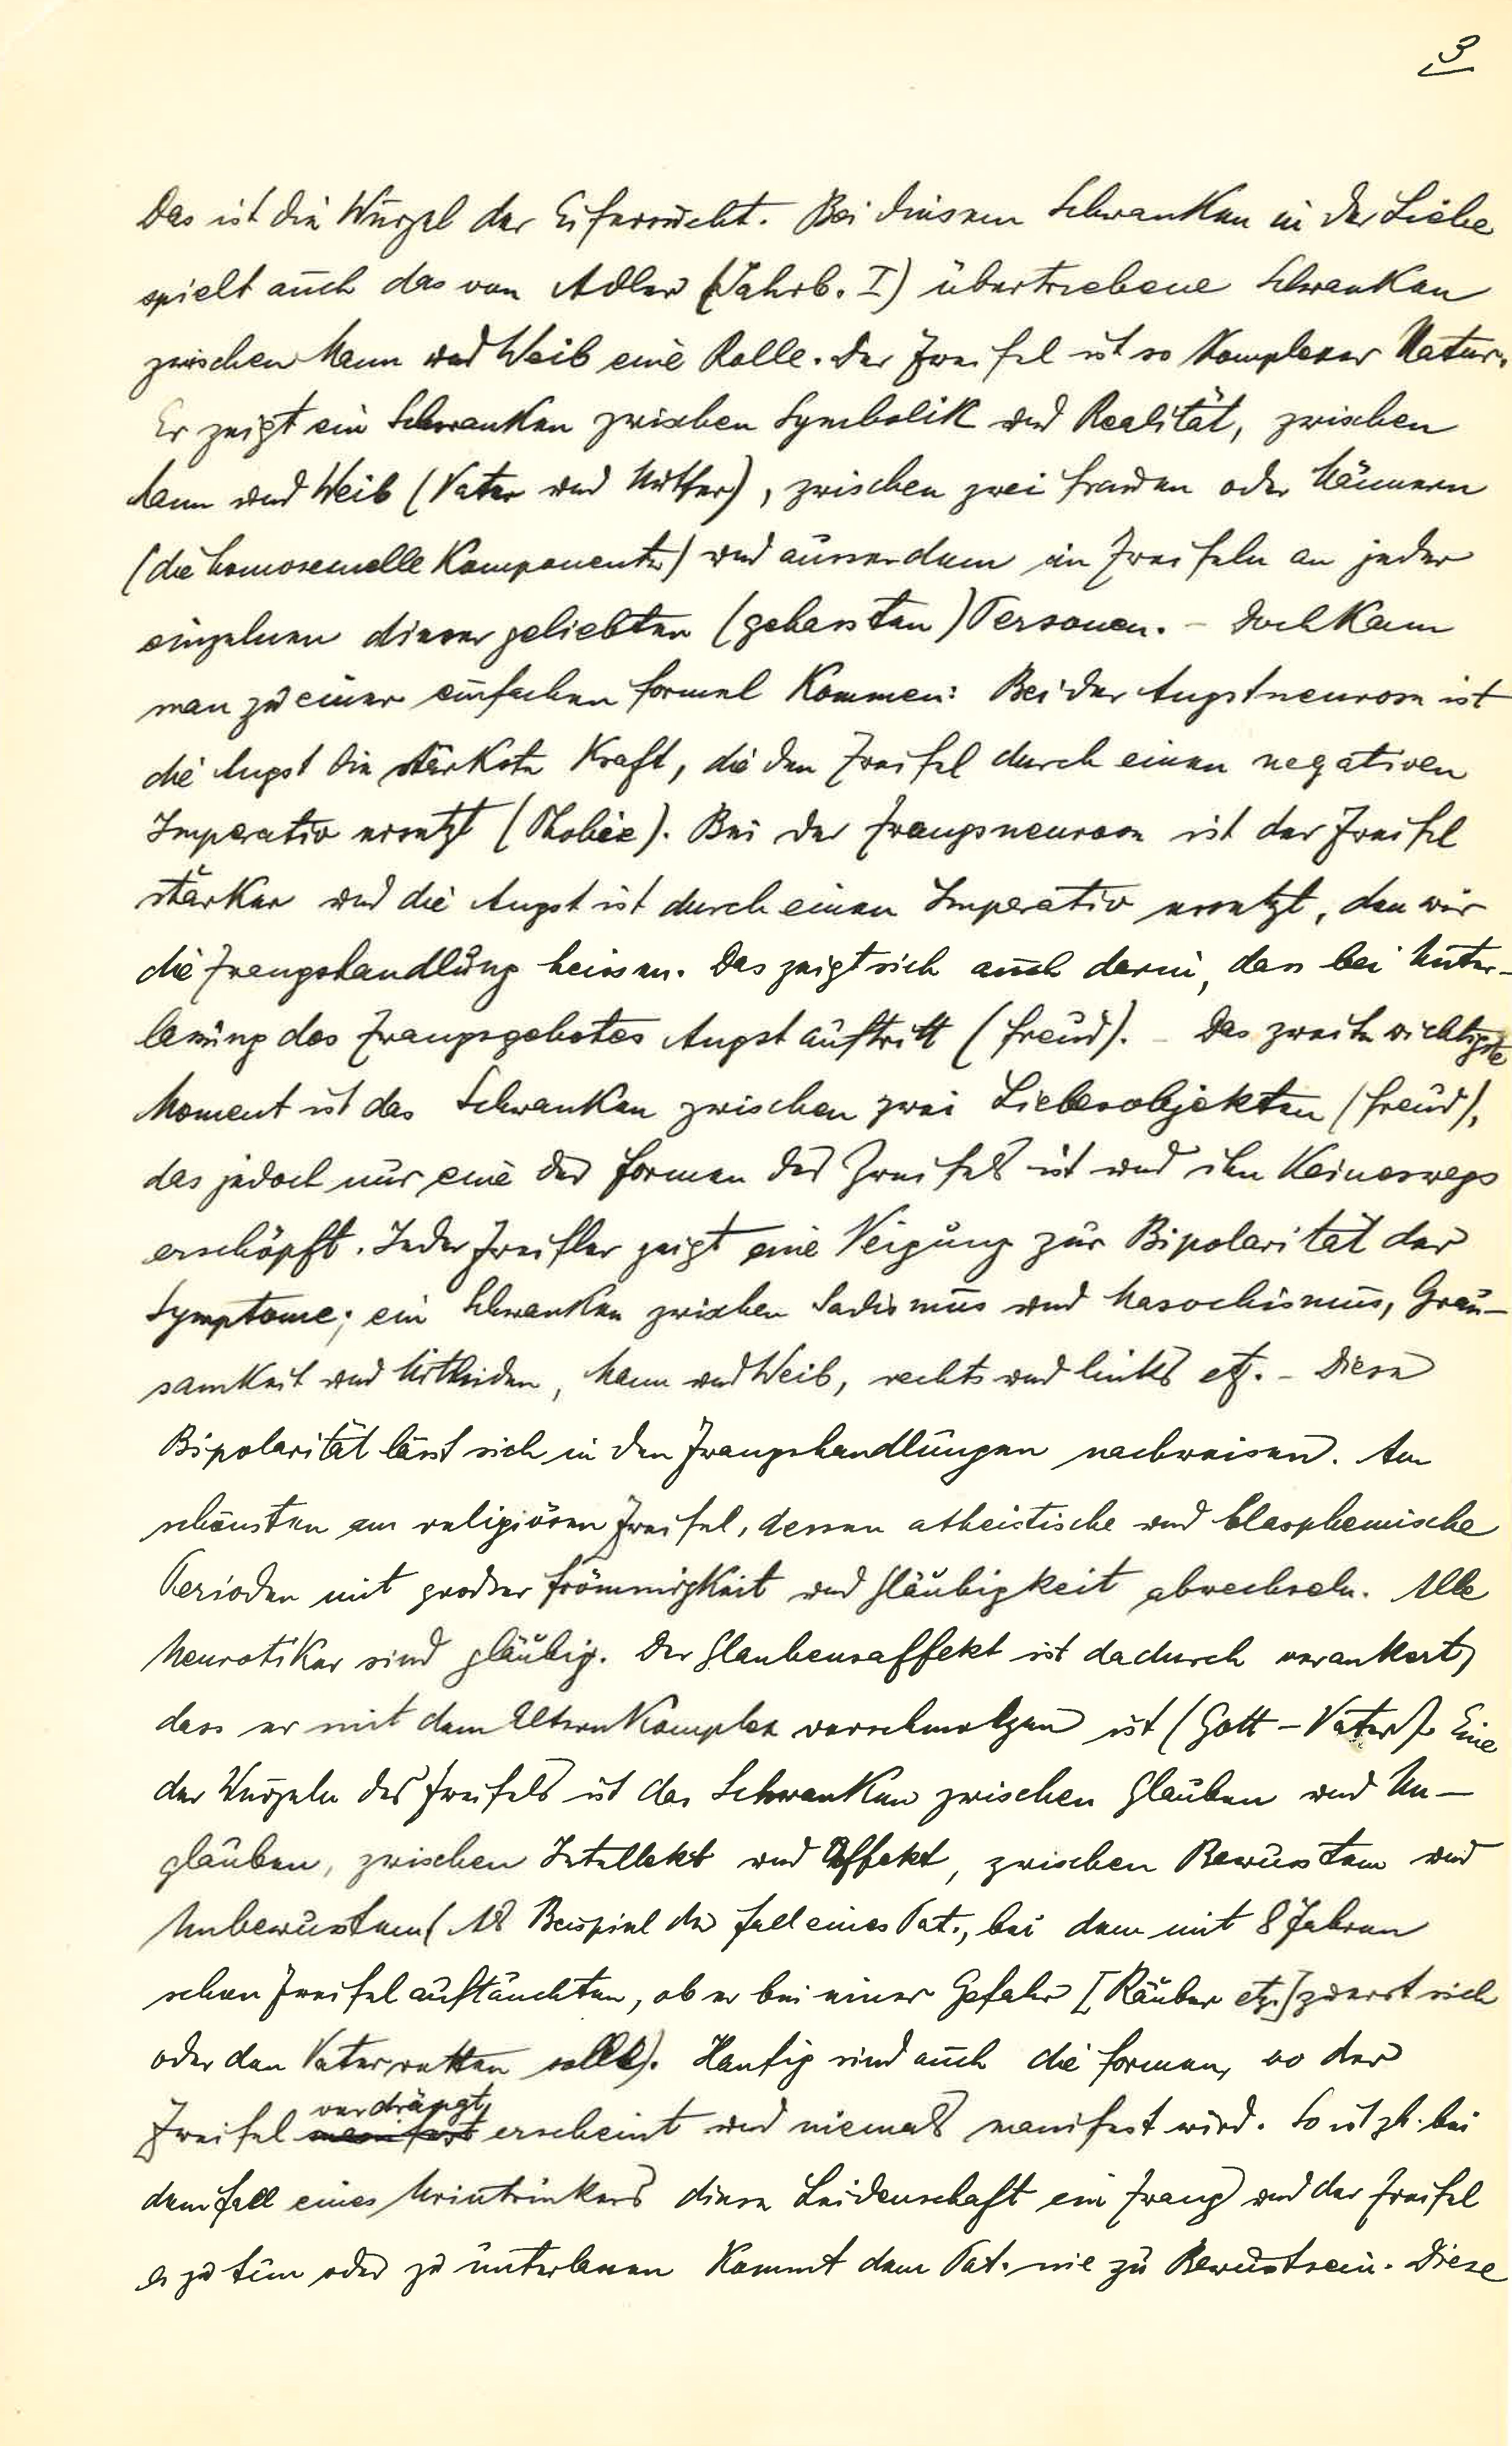 3
Das ist die Wurzel der Eifersucht. Bei diesem Schwanken in der Liebe
spielt auch das von Adler (Jahrb. I) übertriebene Schwanken
zwischen Mann und Weib eine Rolle. Der Zweifel ist so komplexer Natur.
Er zeigt ein Schwanken zwischen Symbolik und Realität, zwischen
Mann und Weib (Vater und Mutter), zwischen zwei Frauen oder Männern
(die homosexuelle Komponente) und ausserdem ein Zweifeln an jeder
einzelnen dieser geliebten (gehassten) Personen. – Doch kann
man zu einer einfachen Formel kommen: Bei der Angstneurose ist
die Angst die stärkste Kraft, die den Zweifel durch einen negativen
Imperativ ersetzt (Phobie). Bei der Zwangsneurose ist der Zweifel
stärker und die Angst ist durch einen Imperativ ersetzt, den wir
die Zwangshandlung heissen. Das zeigt sich auch darin, dass bei Unter-
lassung des Zwangsgebotes Angst auftritt (Freud). – Das zweite wichtigste
Moment ist das Schwanken zwischen zwei Liebesobjekten (Freud),
das jedoch nur eine der Formen des Zweifels ist und ihn keineswegs
erschöpft. Jeder Zweifler zeigt eine Neigung zur Bipolarität der
Symptome; ein Schwanken zwischen Sadismus und Masochismus, Grau-
samkeit und Mitleiden, Mann und Weib, rechts und links etz. – Diese
Bipolarität lässt sich in den Zwangshandlungen nachweisen. Am
schönsten am religiösen Zweifel, dessen atheistische und blasphemische
Perioden mit grosser Frömmigkeit und Gläubigkeit abwechseln. Alle
Neurotiker sind gläubig. Der Glaubensaffekt ist dadurch verankert,
dass er mit dem Elternkomplex verschmolzen ist (Gott – Vater). Eine
der Wurzeln des Zweifels ist das Schwanken zwischen Glauben und Un-
glauben, zwischen Intellekt und Affekt, zwischen Bewusstem und
Unbewusstem (Als Beispiel der Fall eines Pat., bei dem mit 8 Jahren
schon Zweifel auftauchten, ob er bei einer Gefahr [Räuber etz.] zuerst sich
oder den Vater retten solle). Haufig sind auch die Formen, wo der
Zweifel manifest verdrängt erscheint und niemals manifest wird. So ist zb. bei
dem Fall eines Urintrinkers diese Leidenschaft ein Zwang und der Zweifel
es zu tun oder zu unterlassen kommt dem Pat. nie zu Bewustsein. Diese